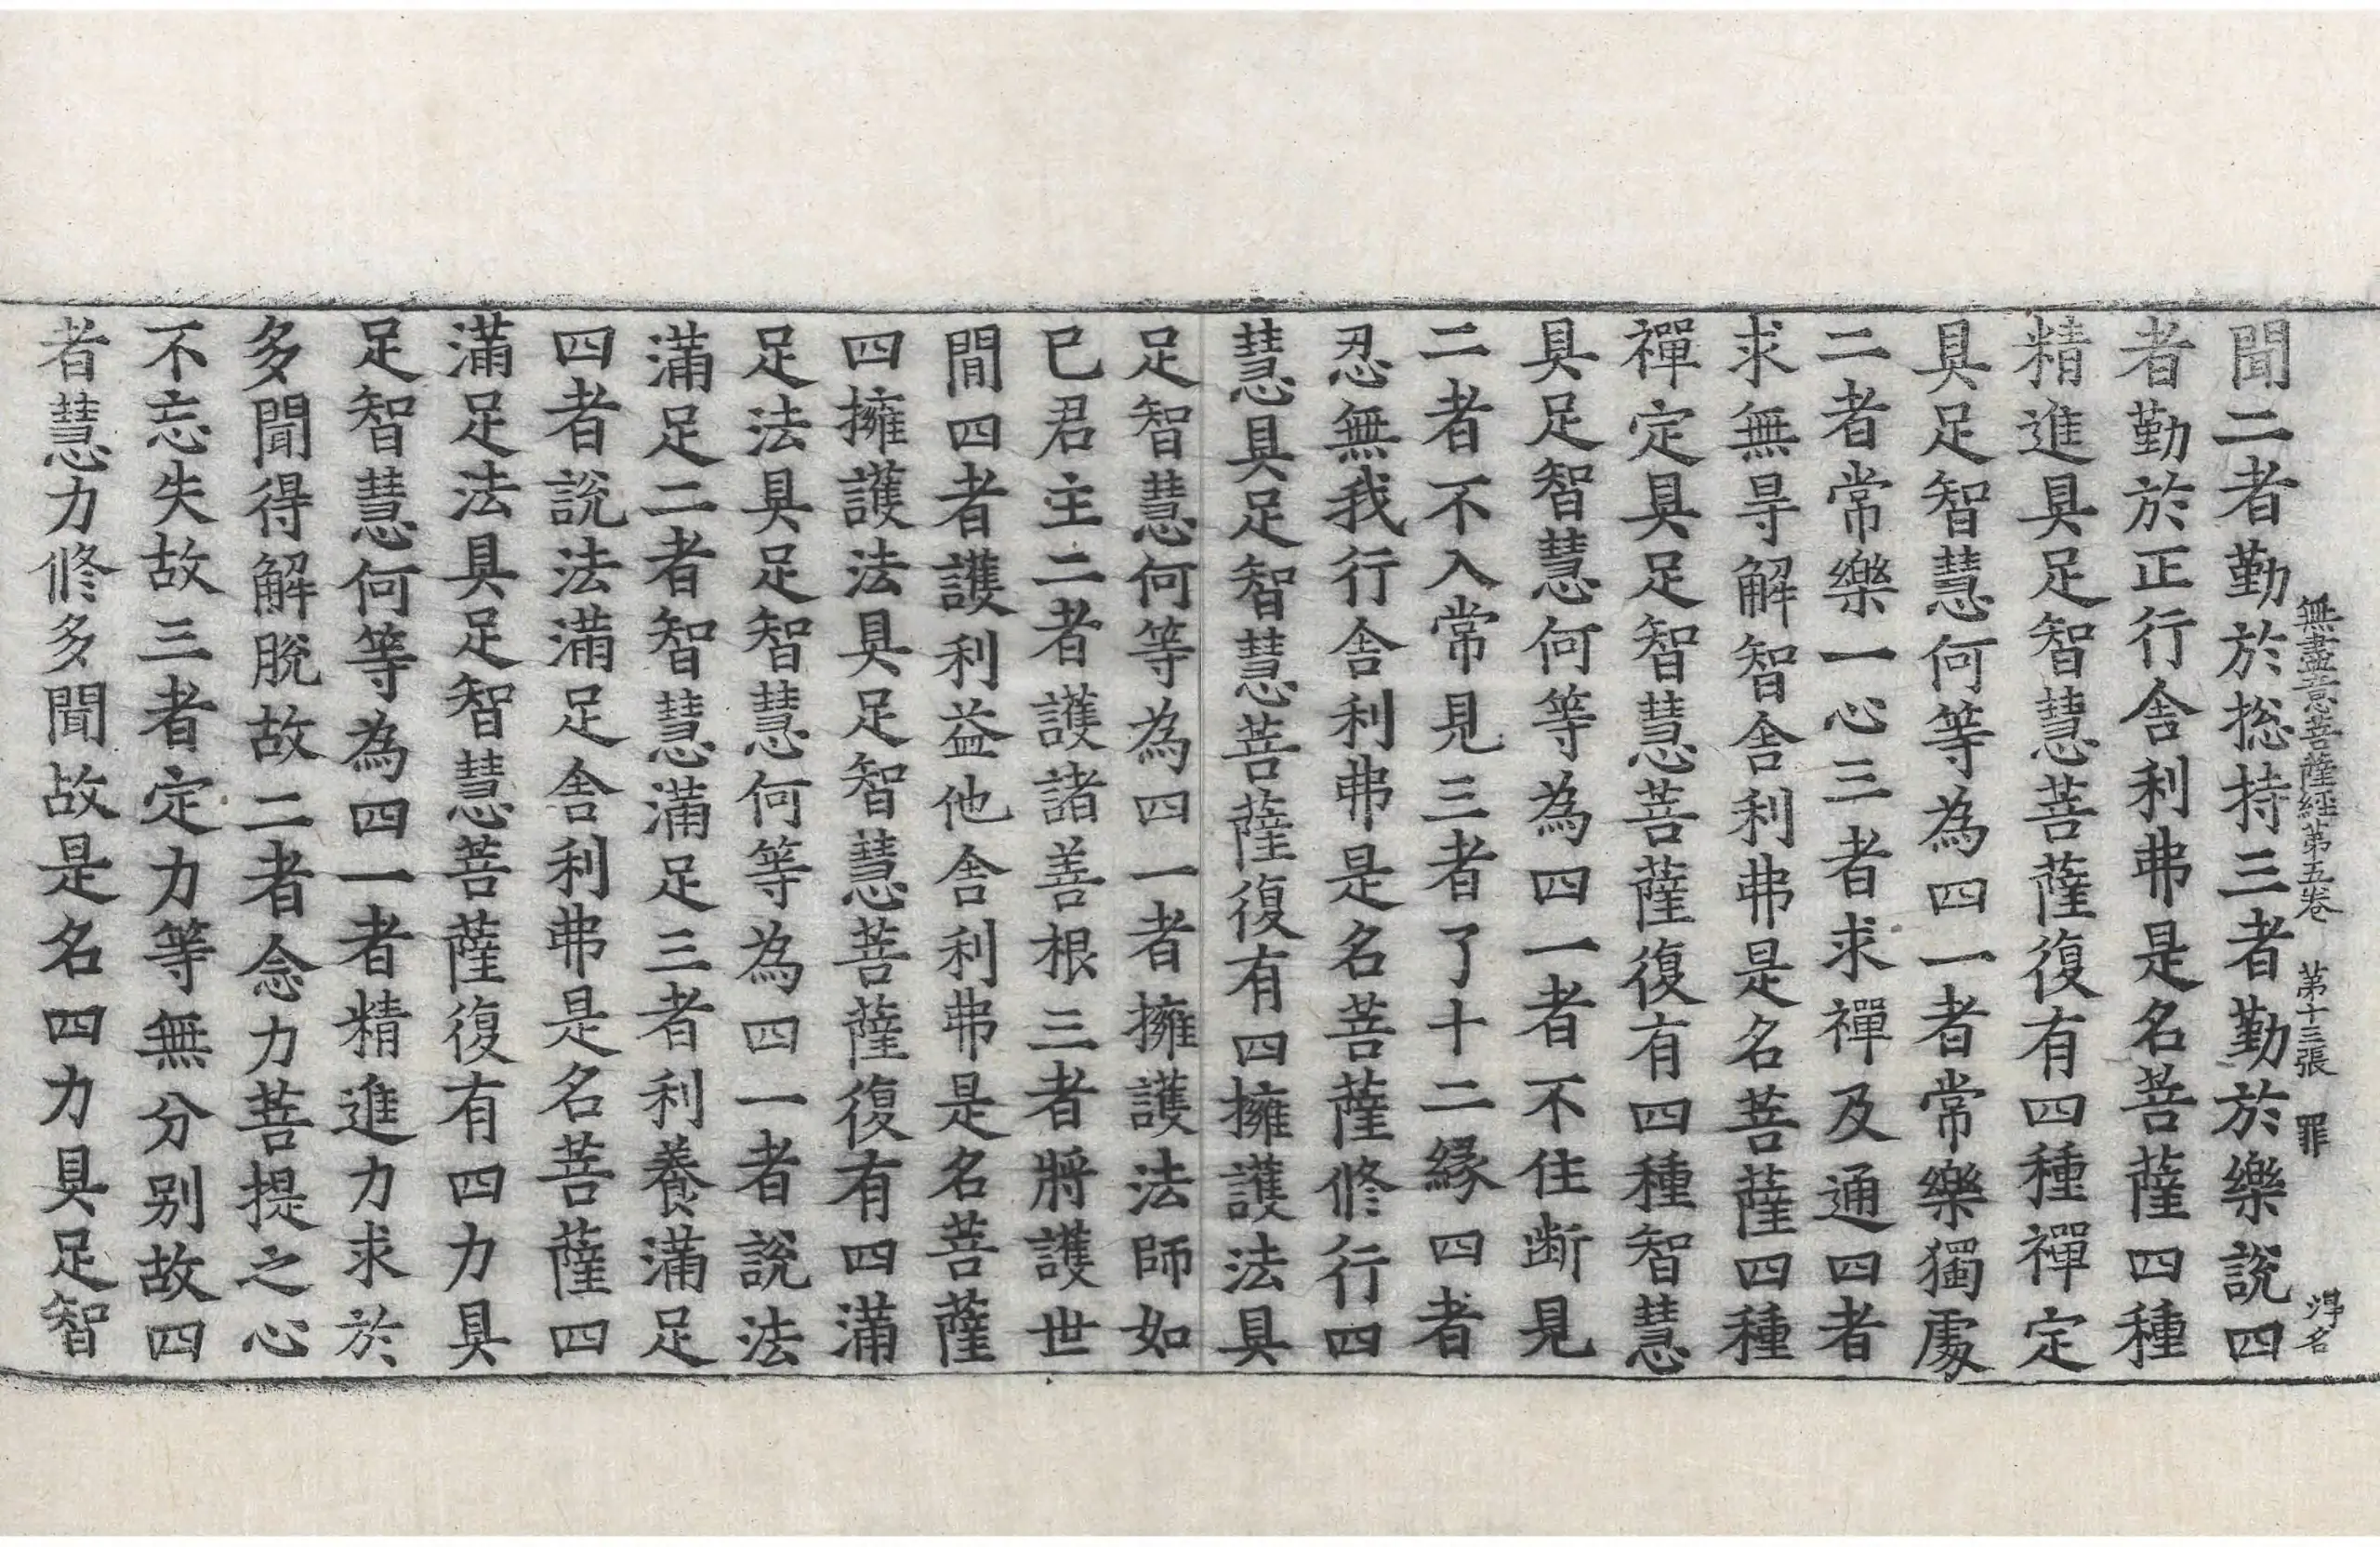 無盡意菩薩經第五卷　第十三張　罪
聞二者勤於揔持三者勤於樂說四
者勤於正行舍利弗是名菩薩四種
精進具足智慧菩薩復有四種禪定
具足智慧何等為四一者常樂獨處
二者常樂一心三者求禪及通四者
求無㝵解智舍利弗是名菩薩四種
禪定具足智慧菩薩復有四種智慧
具足智慧何等為四一者不住断見
二者不入常見三者了十二緣四者
忍無我行舍利弗是名菩薩修行四
慧具足智慧菩薩復有四擁護法具
足智慧何等為四一者擁護法師如
已君主二者護諸善根三者將護世
間四者護利益他舍利弗是名菩薩
四擁護法具足智慧菩薩復有四滿
足法具足智慧何等為四一者說法
滿足二者智慧滿足三者利養滿足
四者說法滿足舍利弗是名菩薩四
滿足法具足智慧菩薩復有四力具
足智慧何等為四一者精進力求於
多聞得解脫故二者念力菩提之心
不忘失故三者定力等無分别故四
者慧力修多聞故是名四力具足智